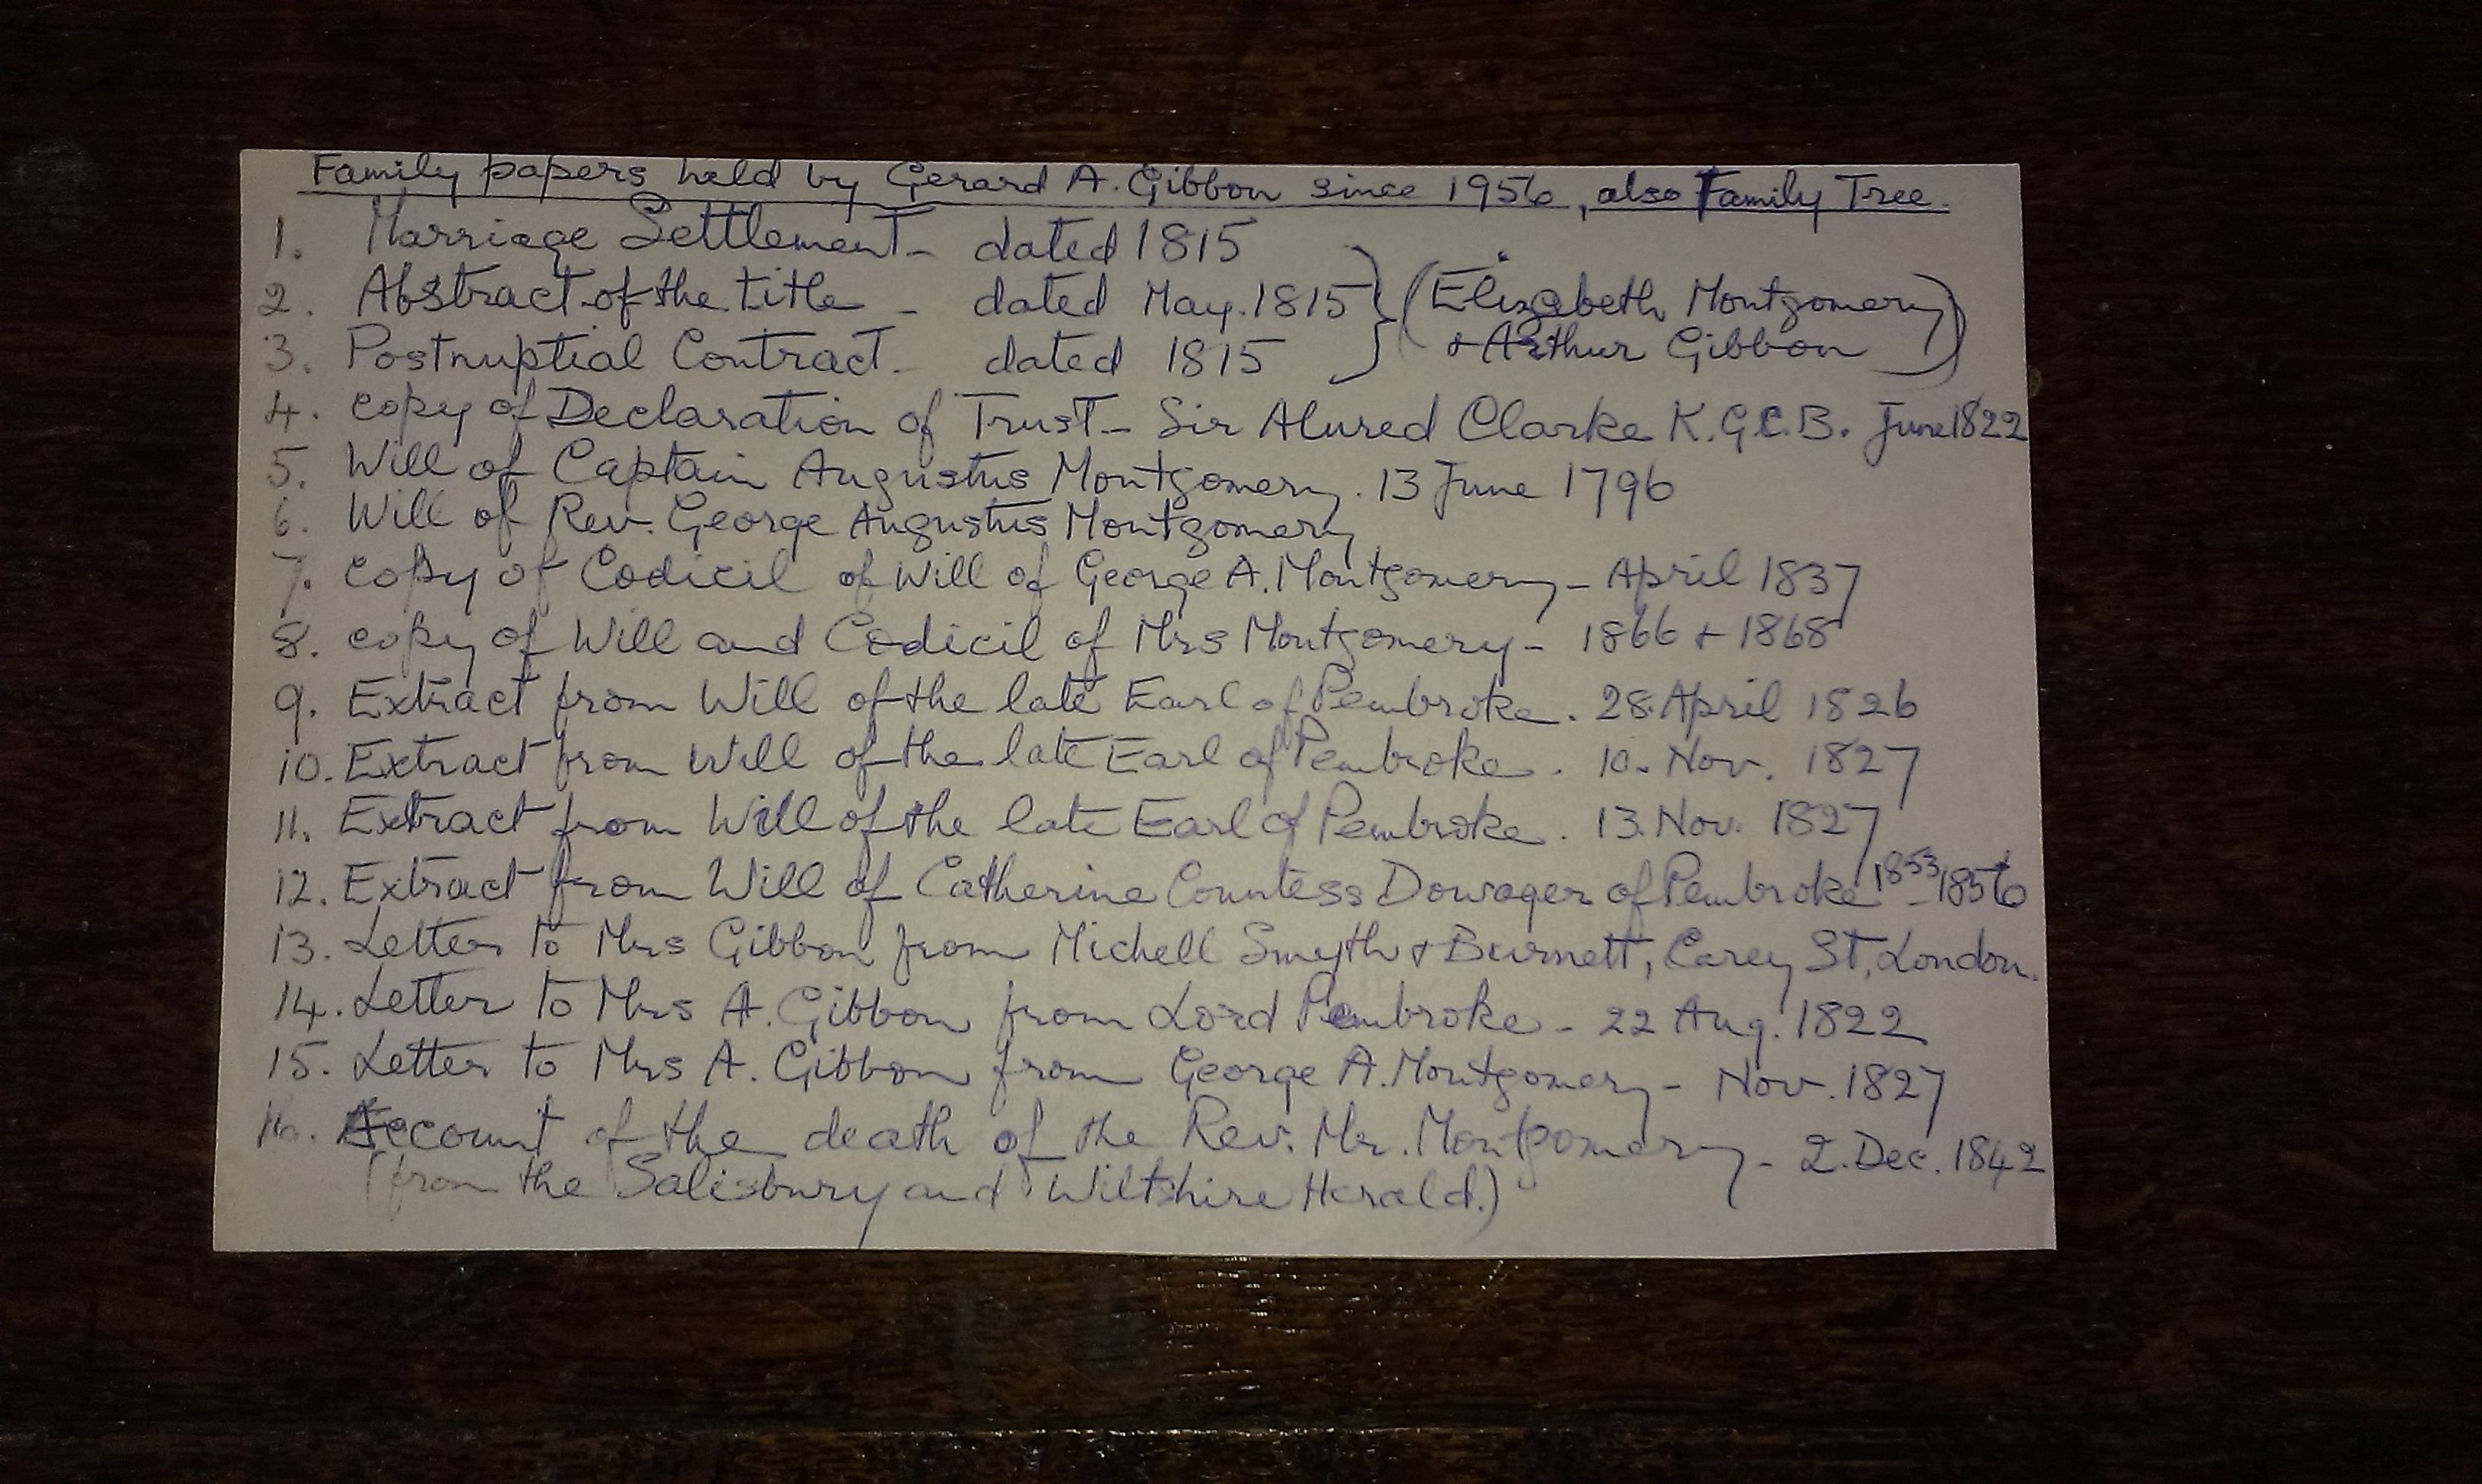 Family papers held by Gerard A. Gibbon since 1956, also Family Tree.
1. Marriage Settlement - dated 1815
2. Abstract of the title - dated May. 1815 } (Elizabeth Montgomery
3. Postnuptial Contract - dated 1815 & Arthur Gibbon)
4. copy of Declaration of Trust - Sir Alured Clarke K.G.C.B. June 1822
5. Will of Captain Augustus Montgomery. 13 June 1796
6. Will of Rev. George Augustus Montgomery
7. copy of Codicil of Will of George A. Montgomery - April 1837
8. copy of Will and Codicil of Mrs Montgomery - 1866 + 1868
9. Extract from Will of the late Earl of Pembroke. 28. April 1826
10. Extract from Will of the late Earl of Pembroke. 10. Nov. 1827
11. Extract from Will of the late Earl of Pembroke. 13. Nov. 1827
12. Extract from Will of Catherine Countess Dowager of Pembroke 1853 - 1856
13. Letter to Mrs Gibbon from Michell Smyth & Burnett, Carey St, London.
14. Letter to Mrs A. Gibbon from Lord Pembroke - 22 Aug. 1822
15. Letter to Mrs A. Gibbon from George A. Montgomery - Nov. 1827
16. Account of the death of the Rev. Mr. Montgomery - 2. Dec. 1842
(from the Salisbury and Wiltshire Herald.)